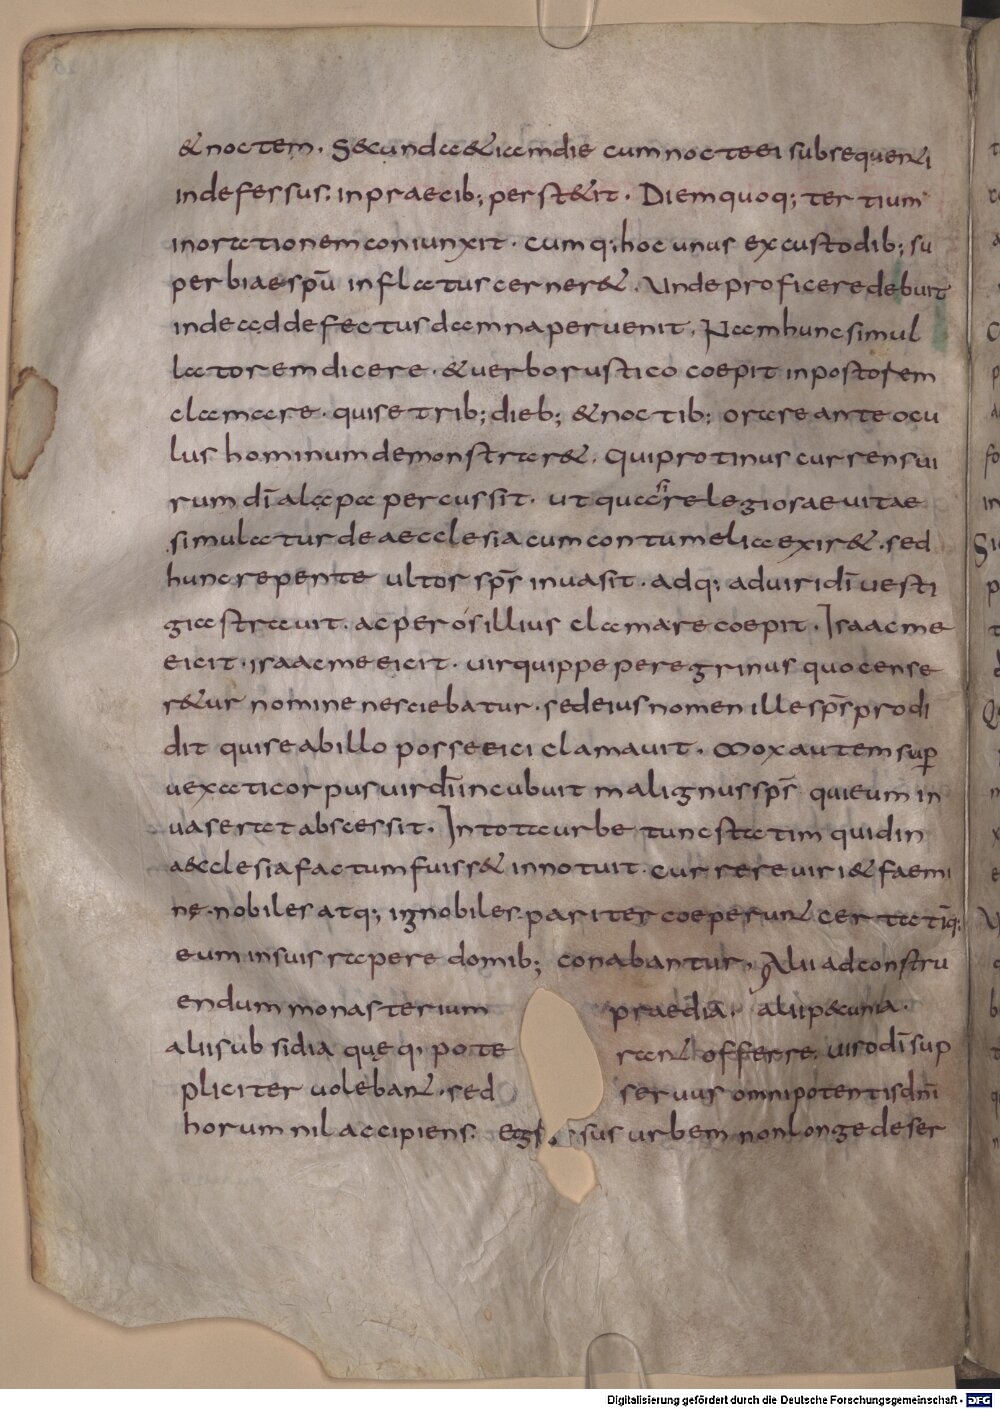 & noctem. Secunda & iam die cum nocte ei subsequenti
indefessus. in praecib; perst&it. Diem quoq; tertium
in orationem coniunxit. cum q; hoc unus ex custodib; su
perbiae spū inflatus cerner&. Unde proficere debuit
inde ad defectus damna peruenit. Nam hunc simul
latorem dicere. & uerbo rustico coepit inpostorem
clamare. qui se trib; dieb; & noctib; orare ante ocu
lus hominum demonstrar&. Qui protinus currens ui
rum dī alapa percussit. ut quasi relegiosae uitae
simulatur de aecclesia cum contumelia exir&. sed
hunc repente ultor sp̄s inuasit. adq; ad uiri dī uesti
gia strauit. ac per ós illius clamare coepit. Isaac me
eicit. isaac me eicit. uir quippe peregrinus quo cense
r&ur nomine nesciebatur. sed eius nomen ille sp̄s prodi
dit qui se ab illo posse eici clamauit. Mox autem sup
uexati corpus uir dī incubuit malignus sp̄s qui eum in
uaserat abscessit. In tota urbe tunc statim quid in
aecclesia factum fuiss& innotuit. currere uiri & faemi
nę. nobiles atq; ignobiles. pariter coeperunt certatīq;
eum in suis rapere domib; conabantur. Alii ad constru
endum monasterium praediā. alii pecunia.
alii subsidia quęq; pote rant offerre. uiro dī sup
pliciter uolebant. sed seruus omnipotentis dnī
horum nil accipiens. egressus urbem non longe deser
Digitalisierung gefördert durch die Deutsche Forschungsgemeinschaft - DFG